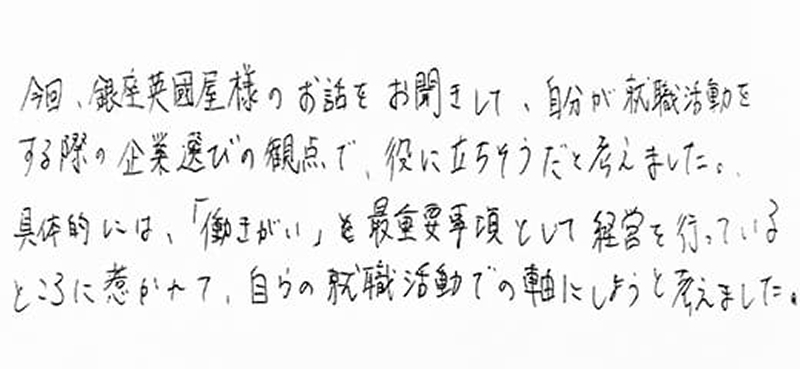 今回、銀座英國屋様のお話をお聞きして、自分が就職活動を
する際の企業選びの観点で、役に立ちそうだと考えました。
具体的には、「働きがい」を最重要事項として経営を行っている
ところに惹かれて、自らの就職活動での軸にしようと考えました。